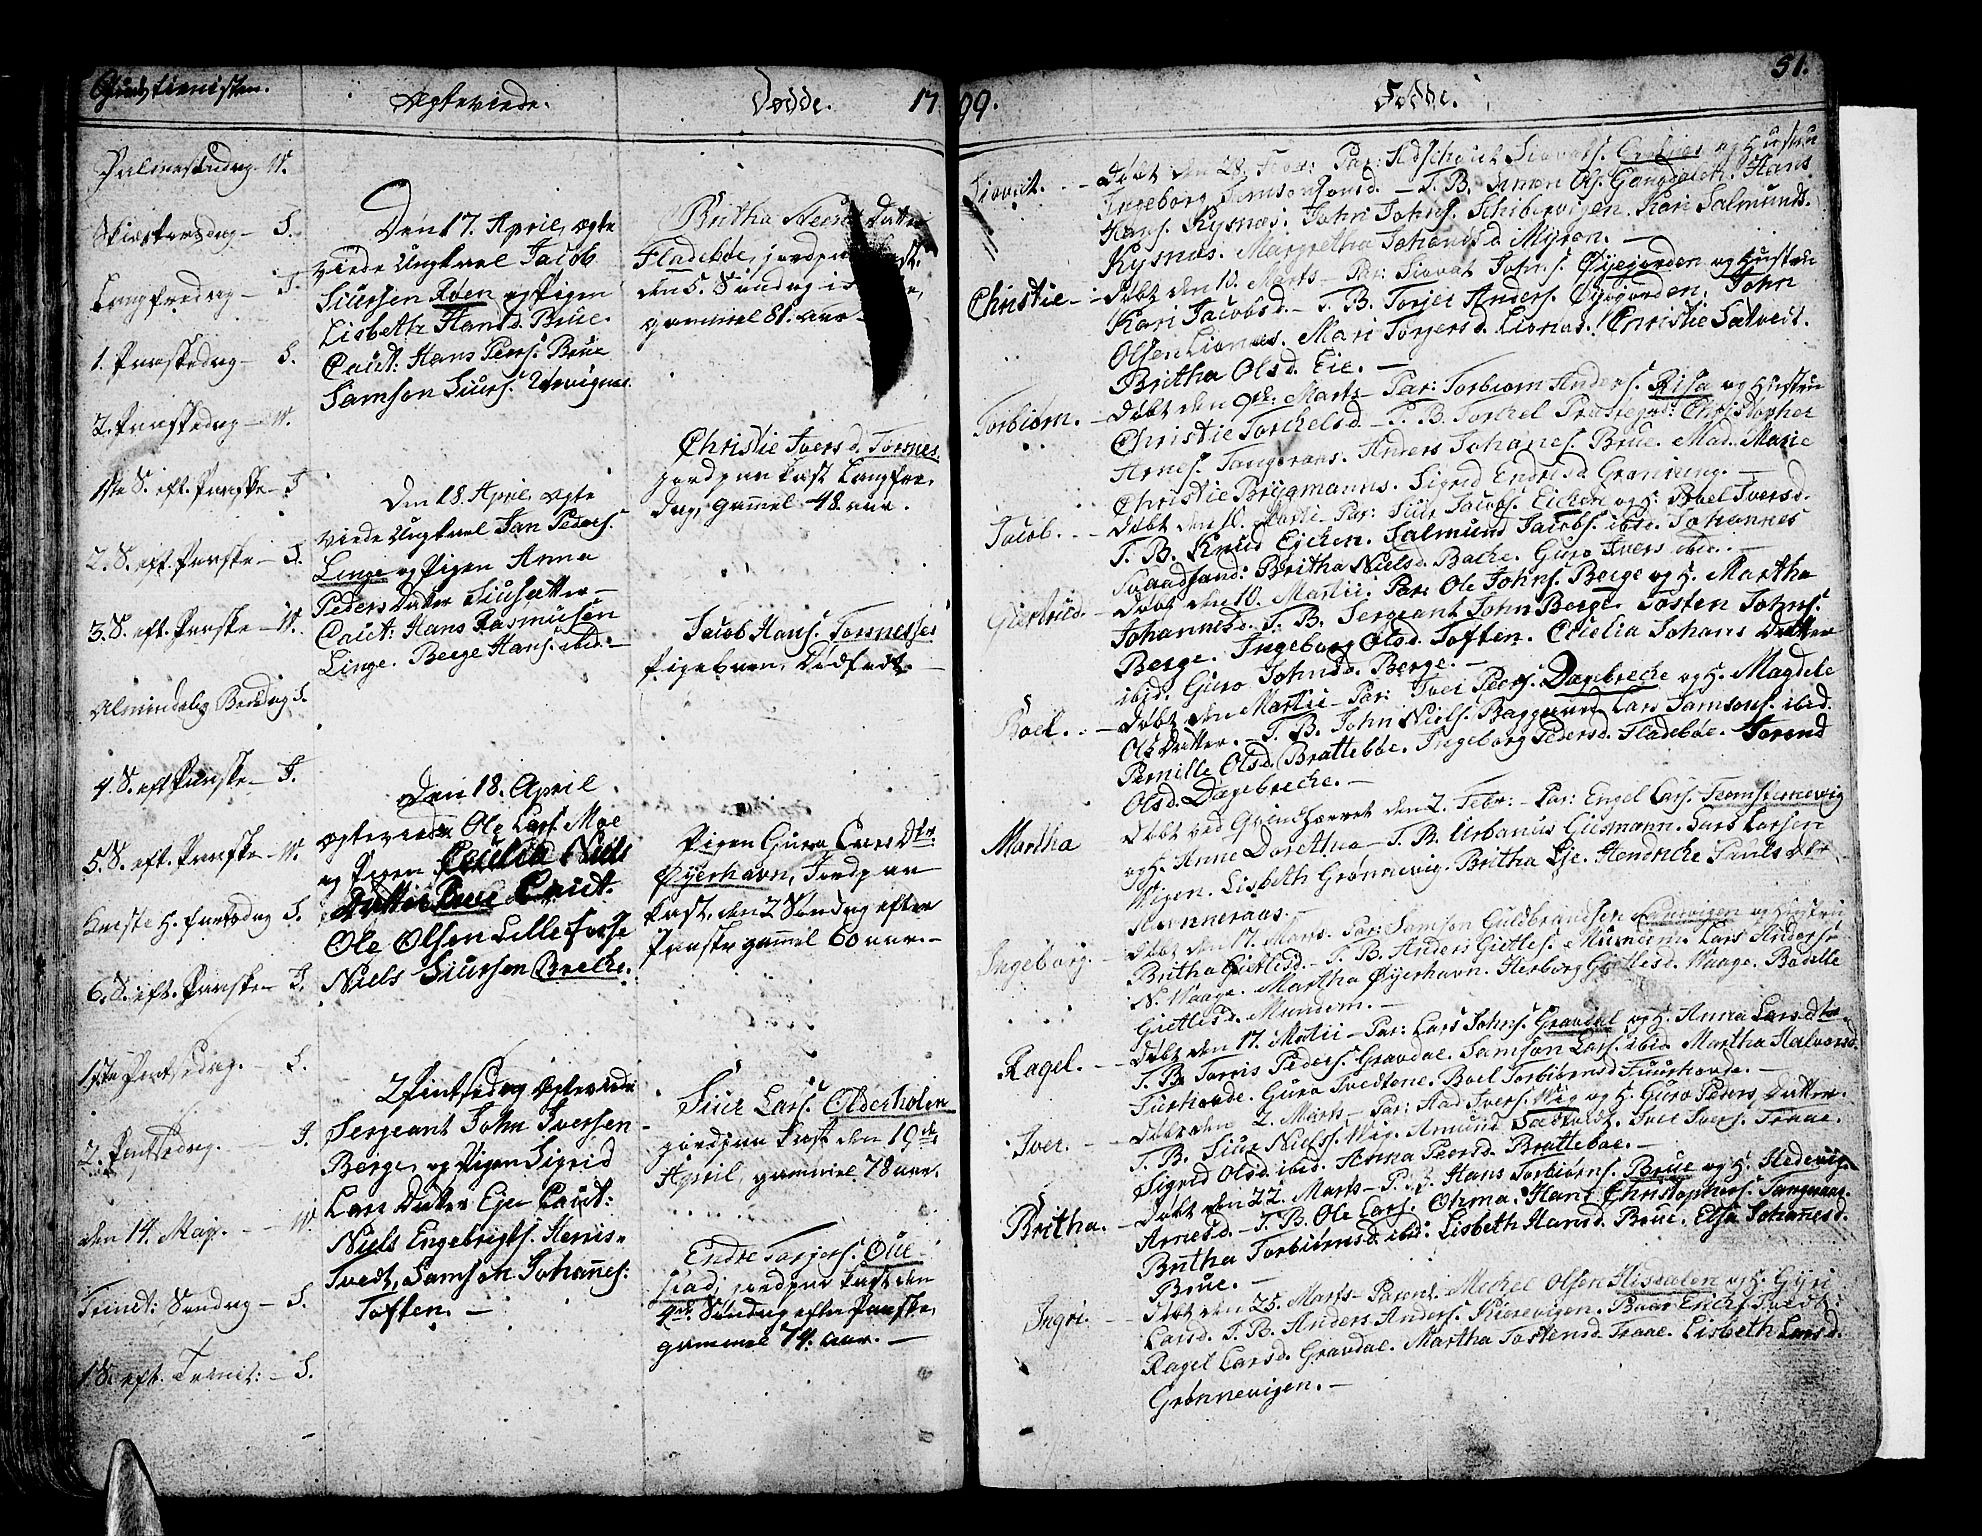 Gudstienisten.
Palmesøndag. W.
Skiertorsdag - S.
Langfredag - T.
1. Paaskedag - S.
2. Paaskedag - W.
1ste S. eft. Paaske - T
2. S. eft. Paaske - S.
3. S. eft. Paaske - W.
Almindelig Bededag S.
4. S. eft Paaske - T.
5. S. eft. Paaske - W.
Christi H. Fartsdag S.
6. S. eft. Paaske - T.
1ste Pintsedag. - S.
2. Pintsedag. - T.
den 14. Maji. - W.
Trinit: Søndag - S.
1. S. eft. Trinit: - S.
Ægteviede.
Den 17. April, ægte
viede Ungkarl Jacob
Siursen Røen og Pigen
Lisbeth Hansd. Brue.
Caut: Hans Pers. Brue
Samson Siurs.
Den 18. April, ægte
viede Ungkarl Jan Peders.
Linge og Pigen Anna
Peders Datter Siusætter -
Caut: Hans Rasmusen
Linge. Berge Hans. ibid: -
Den 18. April
ægteviede Ole Lars. Moe
og Pigen Cecilia Niels
Datter Brue Caut.
Ole Olsen Lille Fosse
Niels Siursen Breche.
2 Pintsedag ægteviede
Sergeant John Iversen
Berge, og Pigen Sigrid
Lars Datter Eje Caut:
Niels Engebrigts. Herris-
Tvedt, Samson Johanes:
Toften. -
Døde.
Britha Datter
Fladebøe, jordpaa
den 5. Søndag i
gammel 81. aar -
Christie Ivers d. Torsnes
jordpaakast Langfre,
dag, gamel 48 aar.
Jacob Hans. Torsnesses
Pigebarn, Dødfødt. -
Pigen Guro Lars Dtr
Øyerhavn, Jordpaa
kast, den 2 Søndag efter
Paaske gamel 60 aar. -
Siur Lars. Olderholen
jordpaakast den 19de
April, gammel 78 aar.
Endre Torjers. Que-
stad, jordpaakast den
4de Søndag efter Paaske,
gammel 74. aar. -
1799.
Fødde.
51.
Siovat. - Døbt den 28. Febr: Par: Siovats. og Hustru
Ingeborg Samsonsd. - T. B. Simon Ols. Gangdaleh. Hans
Hans. Kysnæs. John Johns. Schibervigen. Kari Salmunds.
Kysnæs. Margretha Johanesd. Myren. -
Christie - Døbt den 10. Marts - Par: Siovat Johns. Øyegarden og Hustru
Kari Jacobsd. - T. B. Torjer Anders. Øyegarden, John
Olsen Lionæs. Mari Torjersd. Lionæs. Christie Salvedt.
Britha Olsd. Eie. -
Torbiørn. - Døbt den 9de Marts - Par: Torbiørn Anders. Risa og Hustru
Christie Torchelsd. - T. B. Torchel Præstegrd: Christopher
Arnes. Tangeraas. Anders Johanes. Brue. Mad. Marie
Christie Brygmanns. Sigrid Endrisd. Grøning. -
Jacob. - Døbt den 10. Martii - Par: Siur Jacobs. Eichen og H. Boel Iversd.
T. B. Knud Eichen. Salmund Jacobs. ibid. Johannes
Britha Nielsd. Bache. Guro Ivers ibid. -
Giertrud - Døbt den 10. Martii. Par: Ole Johns. Berge og H. Martha
Johannisd. T. B. Sergeant John Berge. Tosten Johns.
Berge. Ingeborg Olsd Toften. Cecelia Johans Datter
ibid. Guro Johnsd. Berge. -
Boel. - Døbt den Martii - Par: Iver Peers. Dagebreche og H. Magdele
Ols Datter. - T. B. John Niels. Baggerun Lars Samsons. ibid.
Pernille Olsd. Brattebøe. Ingeborg Pedersd. Fladebøe. Torend
Olsd. Dagebreche. -
Martha Døbt ved Qvindherret den 2. Febr. - Par: Engel Lars. Tromsternevig
og H. Anne Dorethea - T. B. Urbanus Giesmann. Lars Larsen
Wigen. Lisbeth Grønnevig. Britha Eje. Hendriche Pauls Dtr
Ingeborg. - Døbt den 17. Marts. Par: Samson Guldbrandsen og Hustru
Britha Gietlesd. - T. B. Anders Gietles. Mundem. Lars Anders.
N. Waage. Martha Øyerhavn. Herborg Gietlesd. Waage. Bodelle
Gietlesd. Mundem. -
Ragel. - Døbt den 17. Matii - Par: Lars Johns. Gravdal og H. Anna Larsdtr
T. B. Torris Peders. Gravdal. Samson Lars. ibid. Martha Halvorsd.
Furhovde. Guro Tvedtene. Boel Torbiørnsd Fuurhovde. -
Iver. - Døbt den 2. Marts - Par: Aad Ivers. Wig og H. Guro Peders Datter.
T. B. Siur Nielss. Wig. Amund Sædtvedt. Iver Ivers. Traae.
Sigrid Olsd. ibid. Anna Peersd. Brattebøe. -
Britha. - Døbt den 22. Marts - Par: Hans Torbiørns. Brue og H. Hedevig
Arnesd. - T. B. Ole Lars. Oxma. Hans Christophers. Tangeraas.
Britha Torbiørnsd. ibid: Lisbeth Hansd. Brue. Elsa Johanesd.
Brue. -
Ingri. - Døbt den 25. Marts - Parent. Mechel Olsen Hisdalen og H. Gyri
Larsd. T. B. Anders Anders. Kierevigen. Baar Erichs. Tvedt:
Ragel Larsd. Gravdal. Martha Tostensd. Traae. Lisbeth Larsd.
Grønnevigen. -